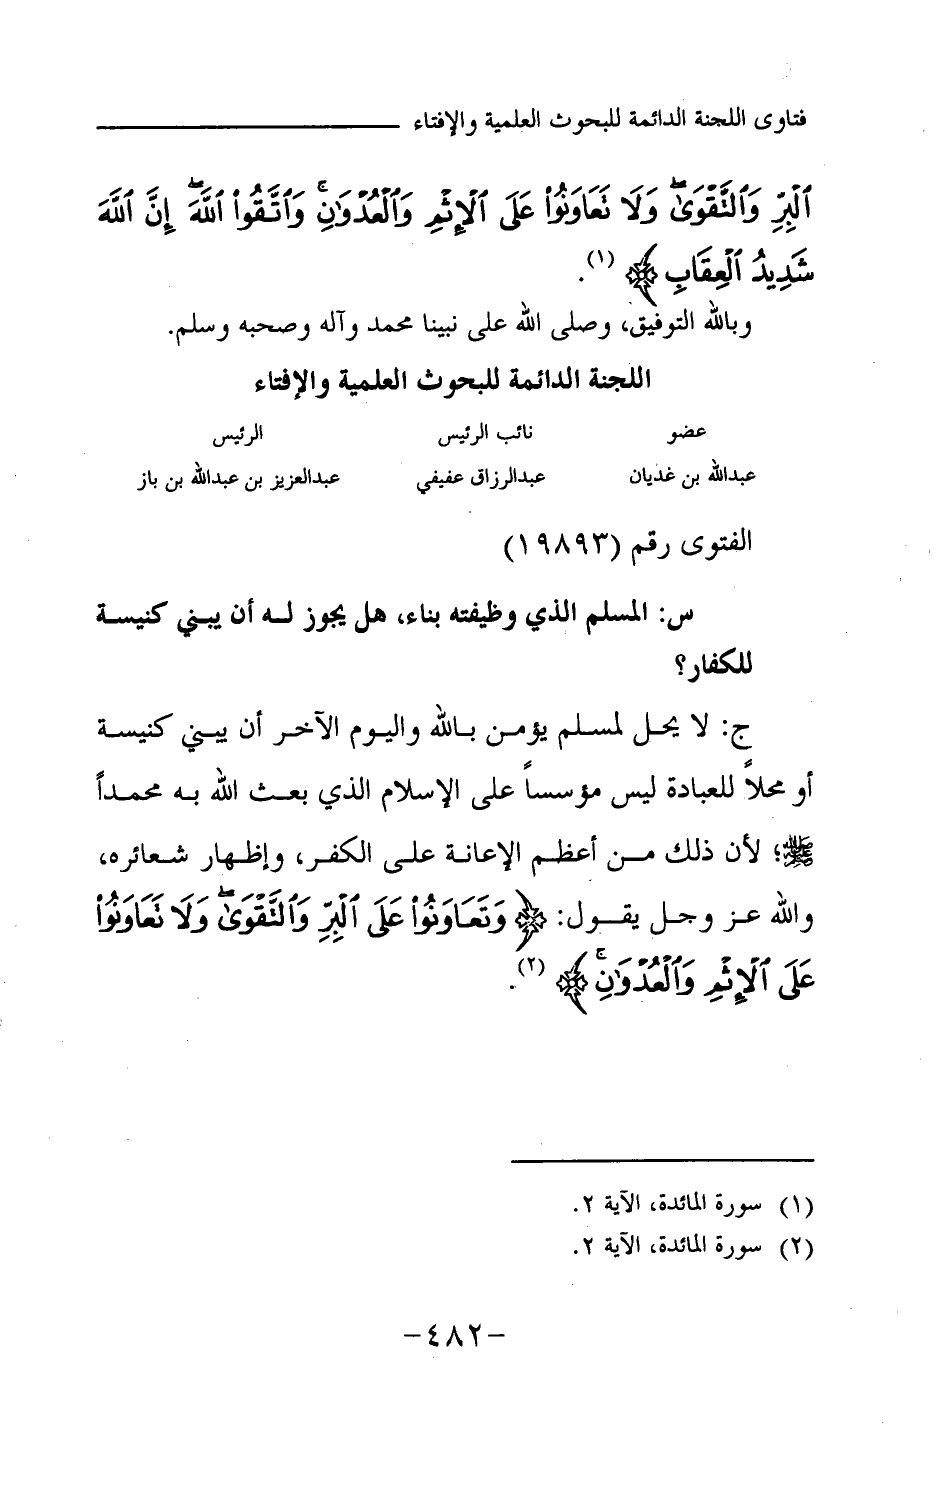 فتاوى اللجنة الدائمة للبحوث العلمية والإفتاء
ٱلۡبِرِّ وَٱلتَّقۡوَىٰۖ وَلَا تَعَاوَنُواْ عَلَى ٱلۡإِثۡمِ وَٱلۡعُدۡوَٰنِۚ وَٱتَّقُواْ ٱللَّهَۖ إِنَّ ٱللَّهَ
شَدِيدُ ٱلۡعِقَابِ ﴾ (١).
وبالله التوفيق، وصلى الله على نبينا محمد وآله وصحبه وسلم.
اللجنة الدائمة للبحوث العلمية والإفتاء
عضو نائب الرئيس الرئيس
عبدالله بن غديان عبدالرزاق عفيفي عبدالعزيز بن عبدالله بن باز
الفتوى رقم (١٩٨٩٣)
س: المسلم الذي وظيفته بناء، هل يجوز لـه أن يبـني كنيسـة
للكفار؟
ج: لا يحـل لمسـلم يؤمـن بـالله واليـوم الآخـر أن يبـني كنيسـة
أو محلاً للعبادة ليس مؤسساً على الإسلام الذي بعـث الله بـه محمـداً
ﷺ؛ لأن ذلك مـن أعظـم الإعانـة علـى الكفـر، وإظهـار شـعائره،
والله عـز وجـل يقـول: ﴿ وَتَعَاوَنُواْ عَلَى ٱلۡبِرِّ وَٱلتَّقۡوَىٰۖ وَلَا تَعَاوَنُواْ
عَلَى ٱلۡإِثۡمِ وَٱلۡعُدۡوَٰنِۚ ﴾ (٢).
(١) سورة المائدة، الآية ٢.
(٢) سورة المائدة، الآية ٢.
-٤٨٢-